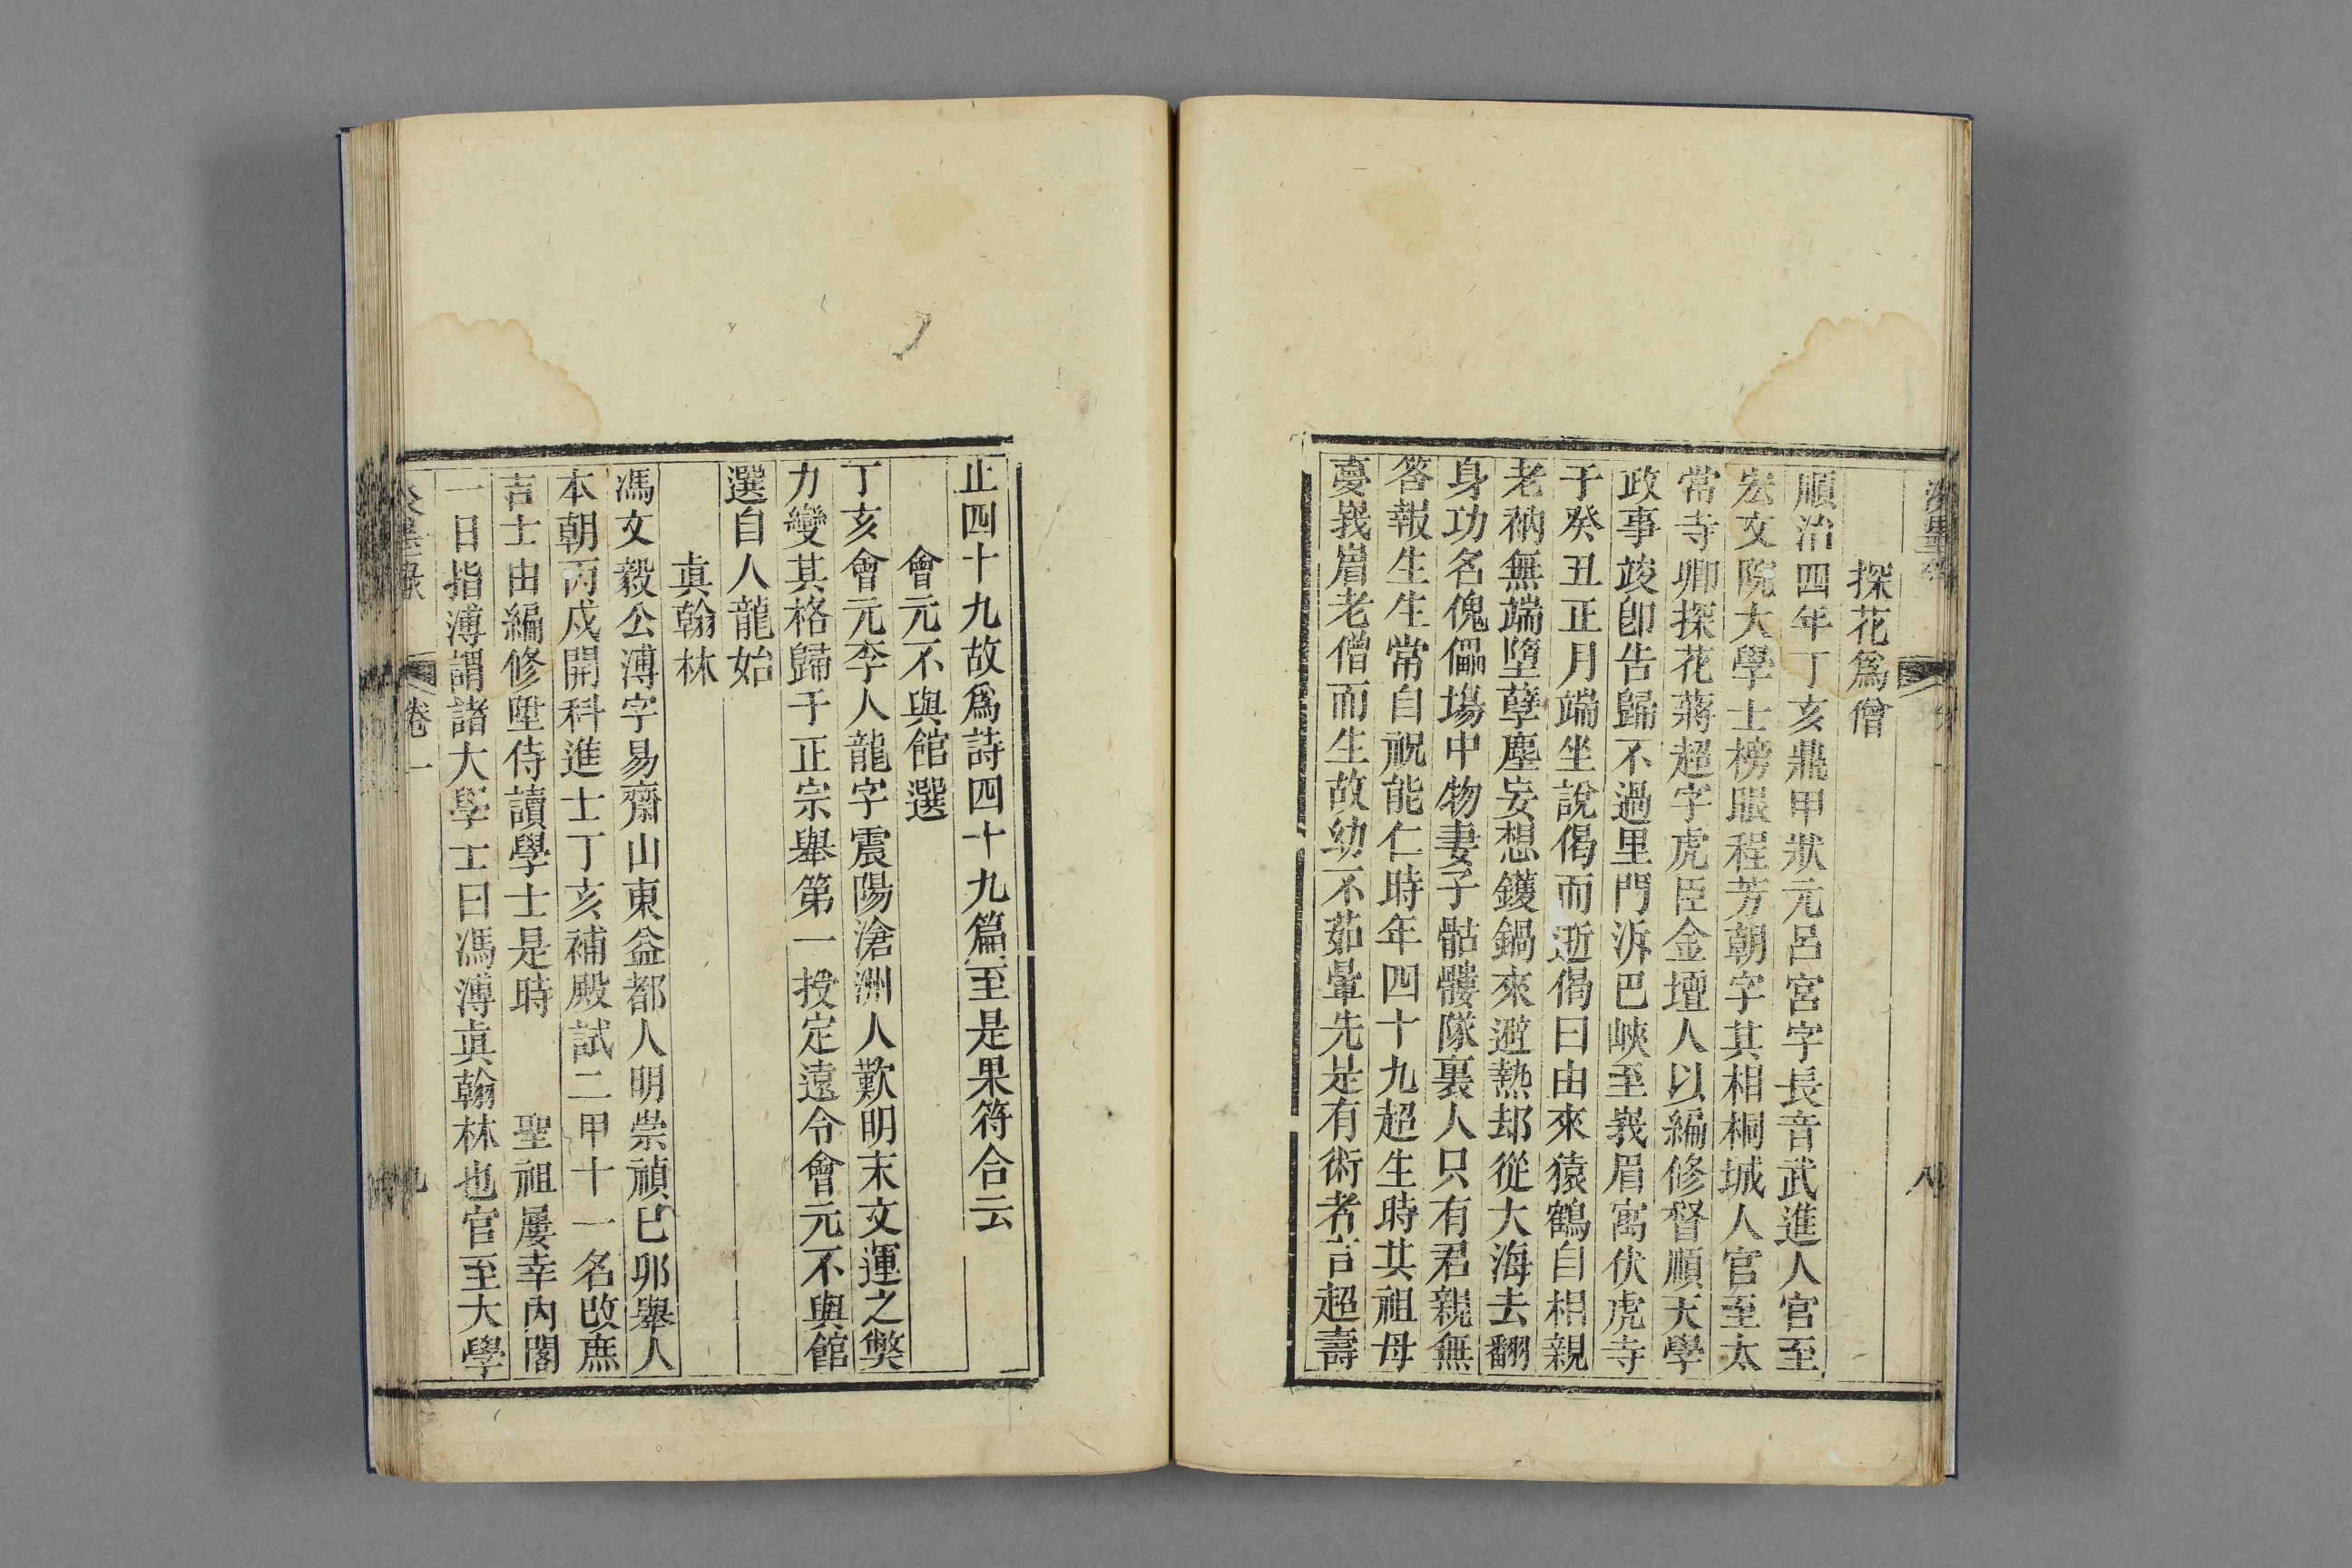 探花爲僧
順治四年丁亥鼎甲狀元呂宮字長音武進人官至
宏文院大學士榜眼程芳朝字其相桐城人官至太
常寺卿探花蔣超字虎臣金壇人以編修督順天學
政事竣卽告歸不過里門泝巴峽至峩眉寓伏虎寺
于癸丑正月端坐說偈而逝偈曰由來猿鶴自相親
老衲無端墮孽塵妄想鑊鍋來避熱却從大海去翻
身功名傀儡塲中物妻子骷髏隊裏人只有君親無
答報生生常自祝能仁時年四十九超生時其祖母
夢峩眉老僧而生故幼不茹葷先是有術者言超壽
止四十九故爲詩四十九篇至是果符合云
會元不與館選
丁亥會元李人龍字震陽滄洲人歎明末文運之獘
力變其格歸于正宗舉第一授定遠令會元不與館
選自人龍始
眞翰林
馮文毅公溥字易齋山東益都人明崇禎巳卯舉人
本朝丙戌開科進士丁亥補殿試二甲十一名改庶
吉士由編修陞侍讀學士是時 聖祖屢幸內閣
一日指溥謂諸大學士曰馮溥眞翰林也官至大學
卷一
九